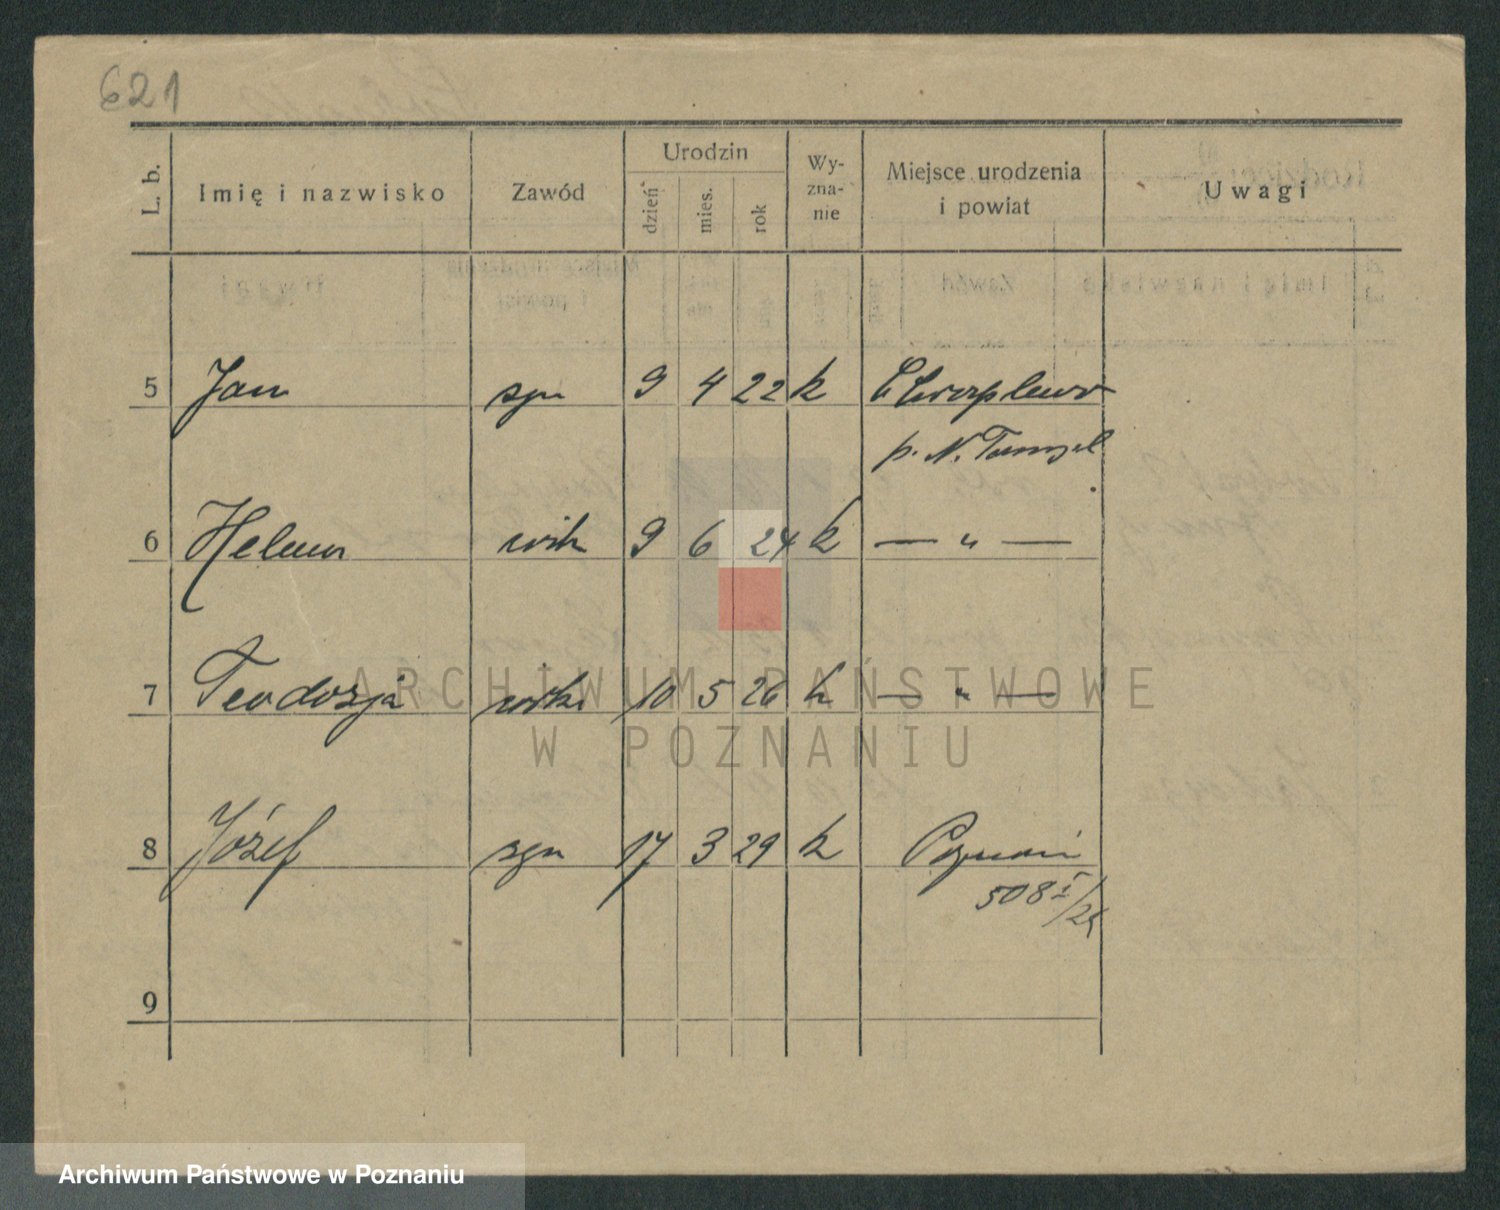 621
L. b. Imię i nazwisko Zawód Urodzin dzień mies. rok Wy-zna-nie Miejsce urodzenia i powiat Uwagi
5 Jan syn 9 4 22 k Chraplewo
p. N. Tomyśl
6 Helena 9 6 24 k — " —
7 Teodozja 10 5 26 k — " —
ARCHIWUM PAŃSTWOWE
W POZNANIU
8 Józef syn 17 3 29 k Poznań
508
9
Archiwum Państwowe w Poznaniu